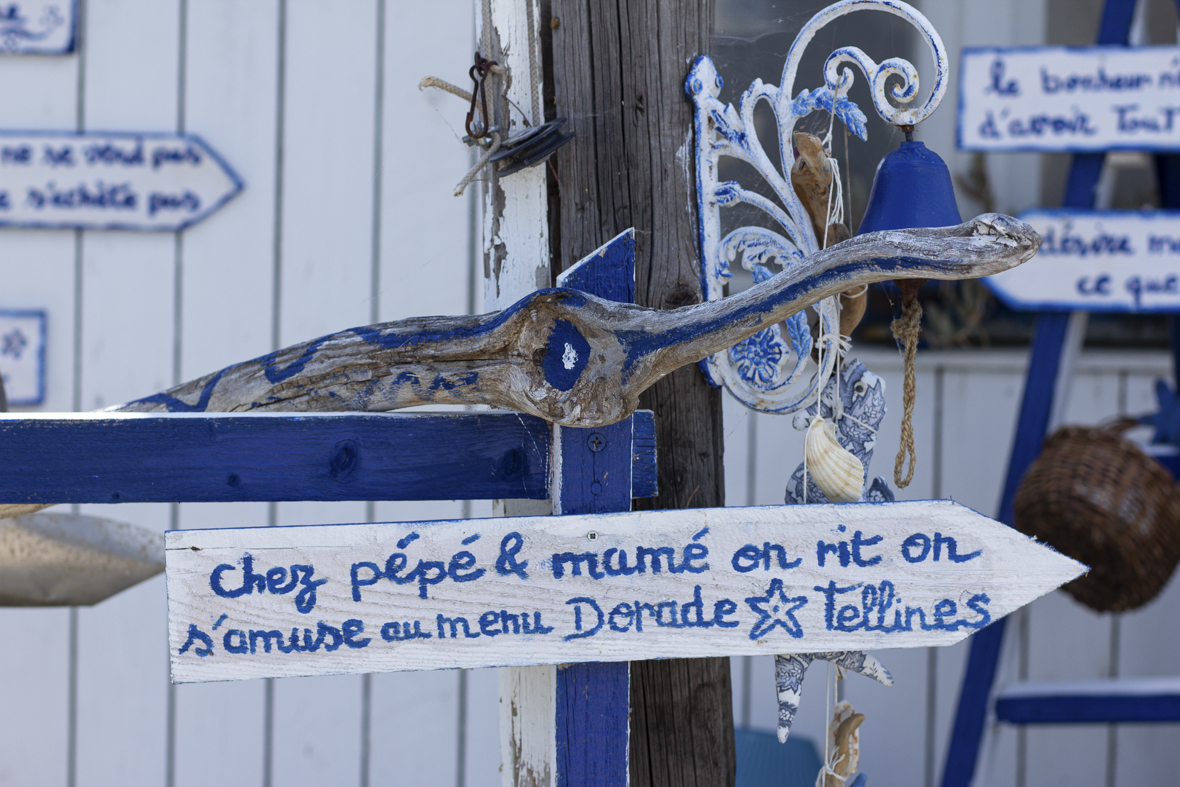 ne se vend pas
s'achète pas
le bonheur
d'avoir Tout
désire
ce que
Chez pépé & mamé on rit on
s'amuse au menu Dorade Tellines